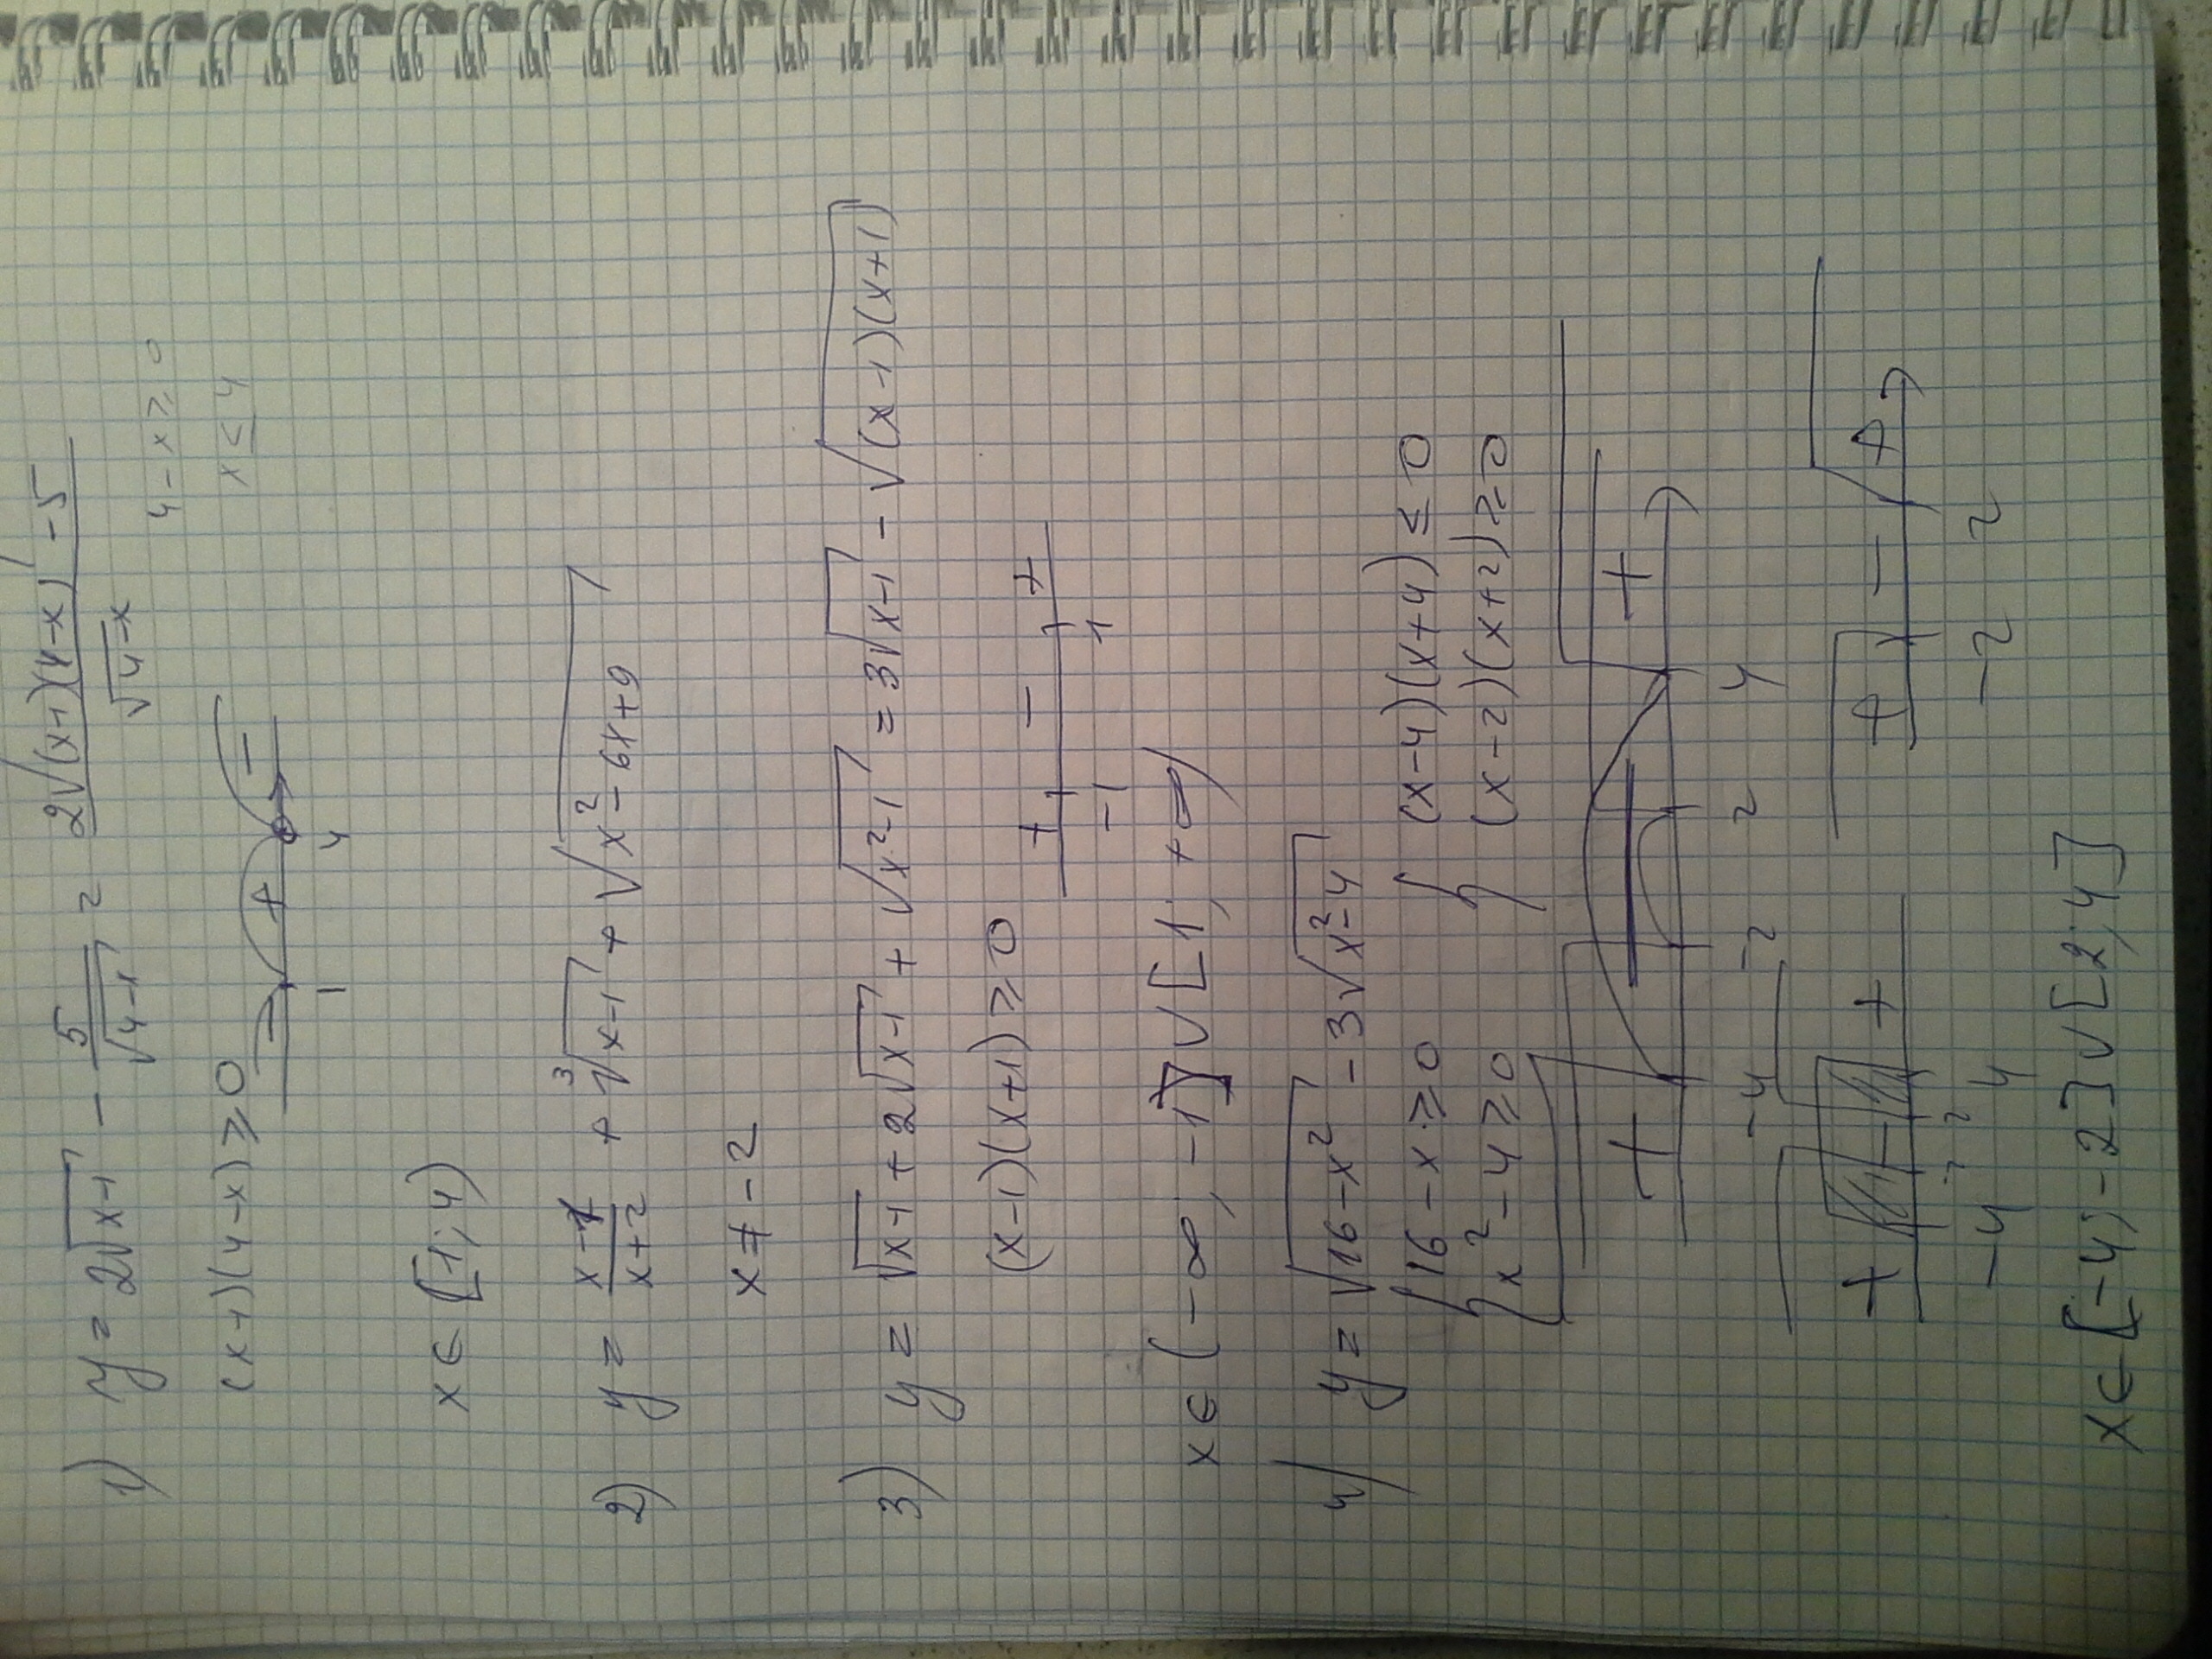 1) y = 2√(x-1) - 5/√(4-x) = (2√((x-1)(4-x)) - 5)/√(4-x)
(x-1)(4-x) ≥ 0
4 - x ≥ 0
x ≤ 4
- + -
1 4
x ∈ [1; 4)
2) y = (x-1)/(x+2) + ³√(x-1) + √(x²-6x+9)
x ≠ -2
3) y = √(x-1) + 2√(x-1) + √(x²-1) = 3√(x-1) - √((x-1)(x+1))
(x-1)(x+1) ≥ 0
+ - +
-1 1
x ∈ (-∞; -1] ∪ [1; +∞)
4) y = √(16-x²) - 3√(x²-4)
{ 16 - x ≥ 0 { (x-4)(x+4) ≤ 0
x² - 4 ≥ 0 (x-2)(x+2) ≥ 0
+ - +
-4 -2 2 4
+ - + + - +
-4 -2 2 4 -2 2
x ∈ [-4; -2] ∪ [2; 4]